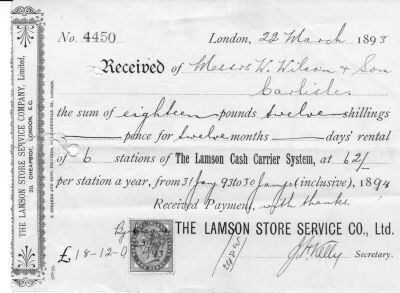 No. 4450 London, 22 March 1893
Received of Messrs W. Wilson & Son
Carlisle
the sum of eighteen pounds twelve shillings
pence for twelve months days' rental
of 6 stations of The Lamson Cash Carrier System, at 62/-
per station a year, from 31 Jany 93 to 30 Jany (inclusive), 1894
Received Payment, with thanks.
THE LAMSON STORE SERVICE CO., Ltd.
£18-12-0
Secretary.
THE LAMSON STORE SERVICE COMPANY, Limited,
20, CHEAPSIDE, LONDON, E.C.